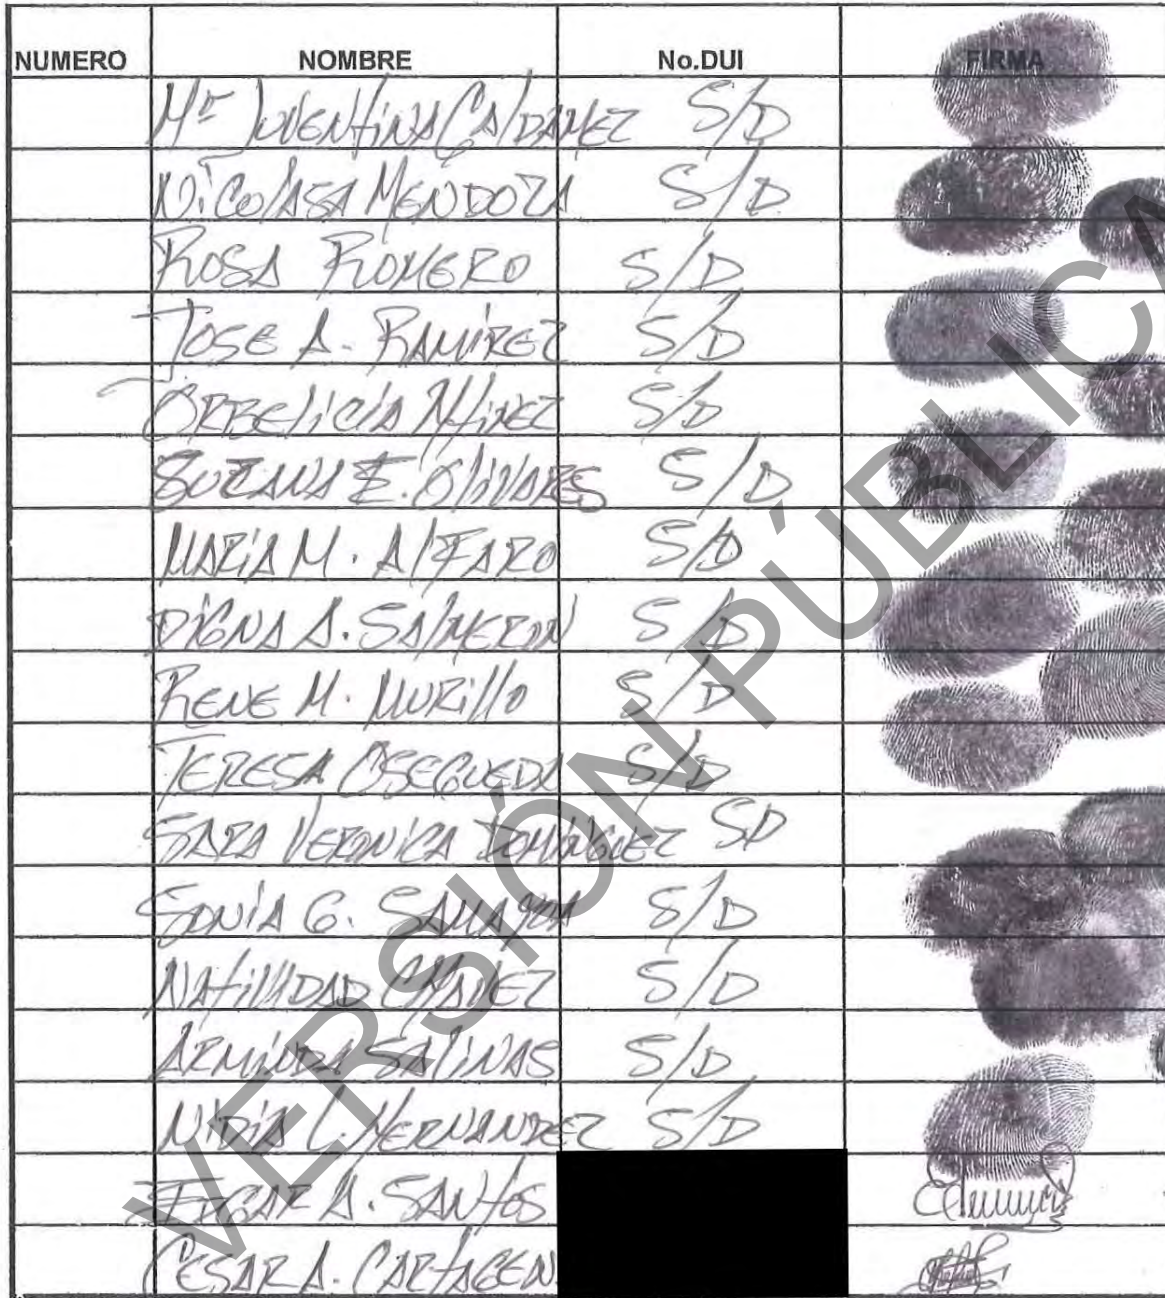 NUMERO NOMBRE No.DUI FIRMA
Mª JUVENTINA CALDAMEZ S/D
NICOLASA MENDOZA S/D
ROSA ROMERO S/D
JOSE A. RAMIREZ S/D
ORBELICIA S/D
SUZANA E. OLIVARES S/D
MARIA M. ALFARO S/D
DIGNA A. SALMERON S/D
RENE M. MURILLO S/D
TERESA OSEGUEDA S/D
SARA VERONICA DOMINGUEZ SD
SONIA G. SAMAYOA S/D
NATIVIDAD CHAVEZ S/D
ARMINDA SALINAS S/D
NIDIA L. HERNANDEZ S/D
EDGAR A. SANTOS
CESAR A. CARTAGEN
VERSIÓN PÚBLICA